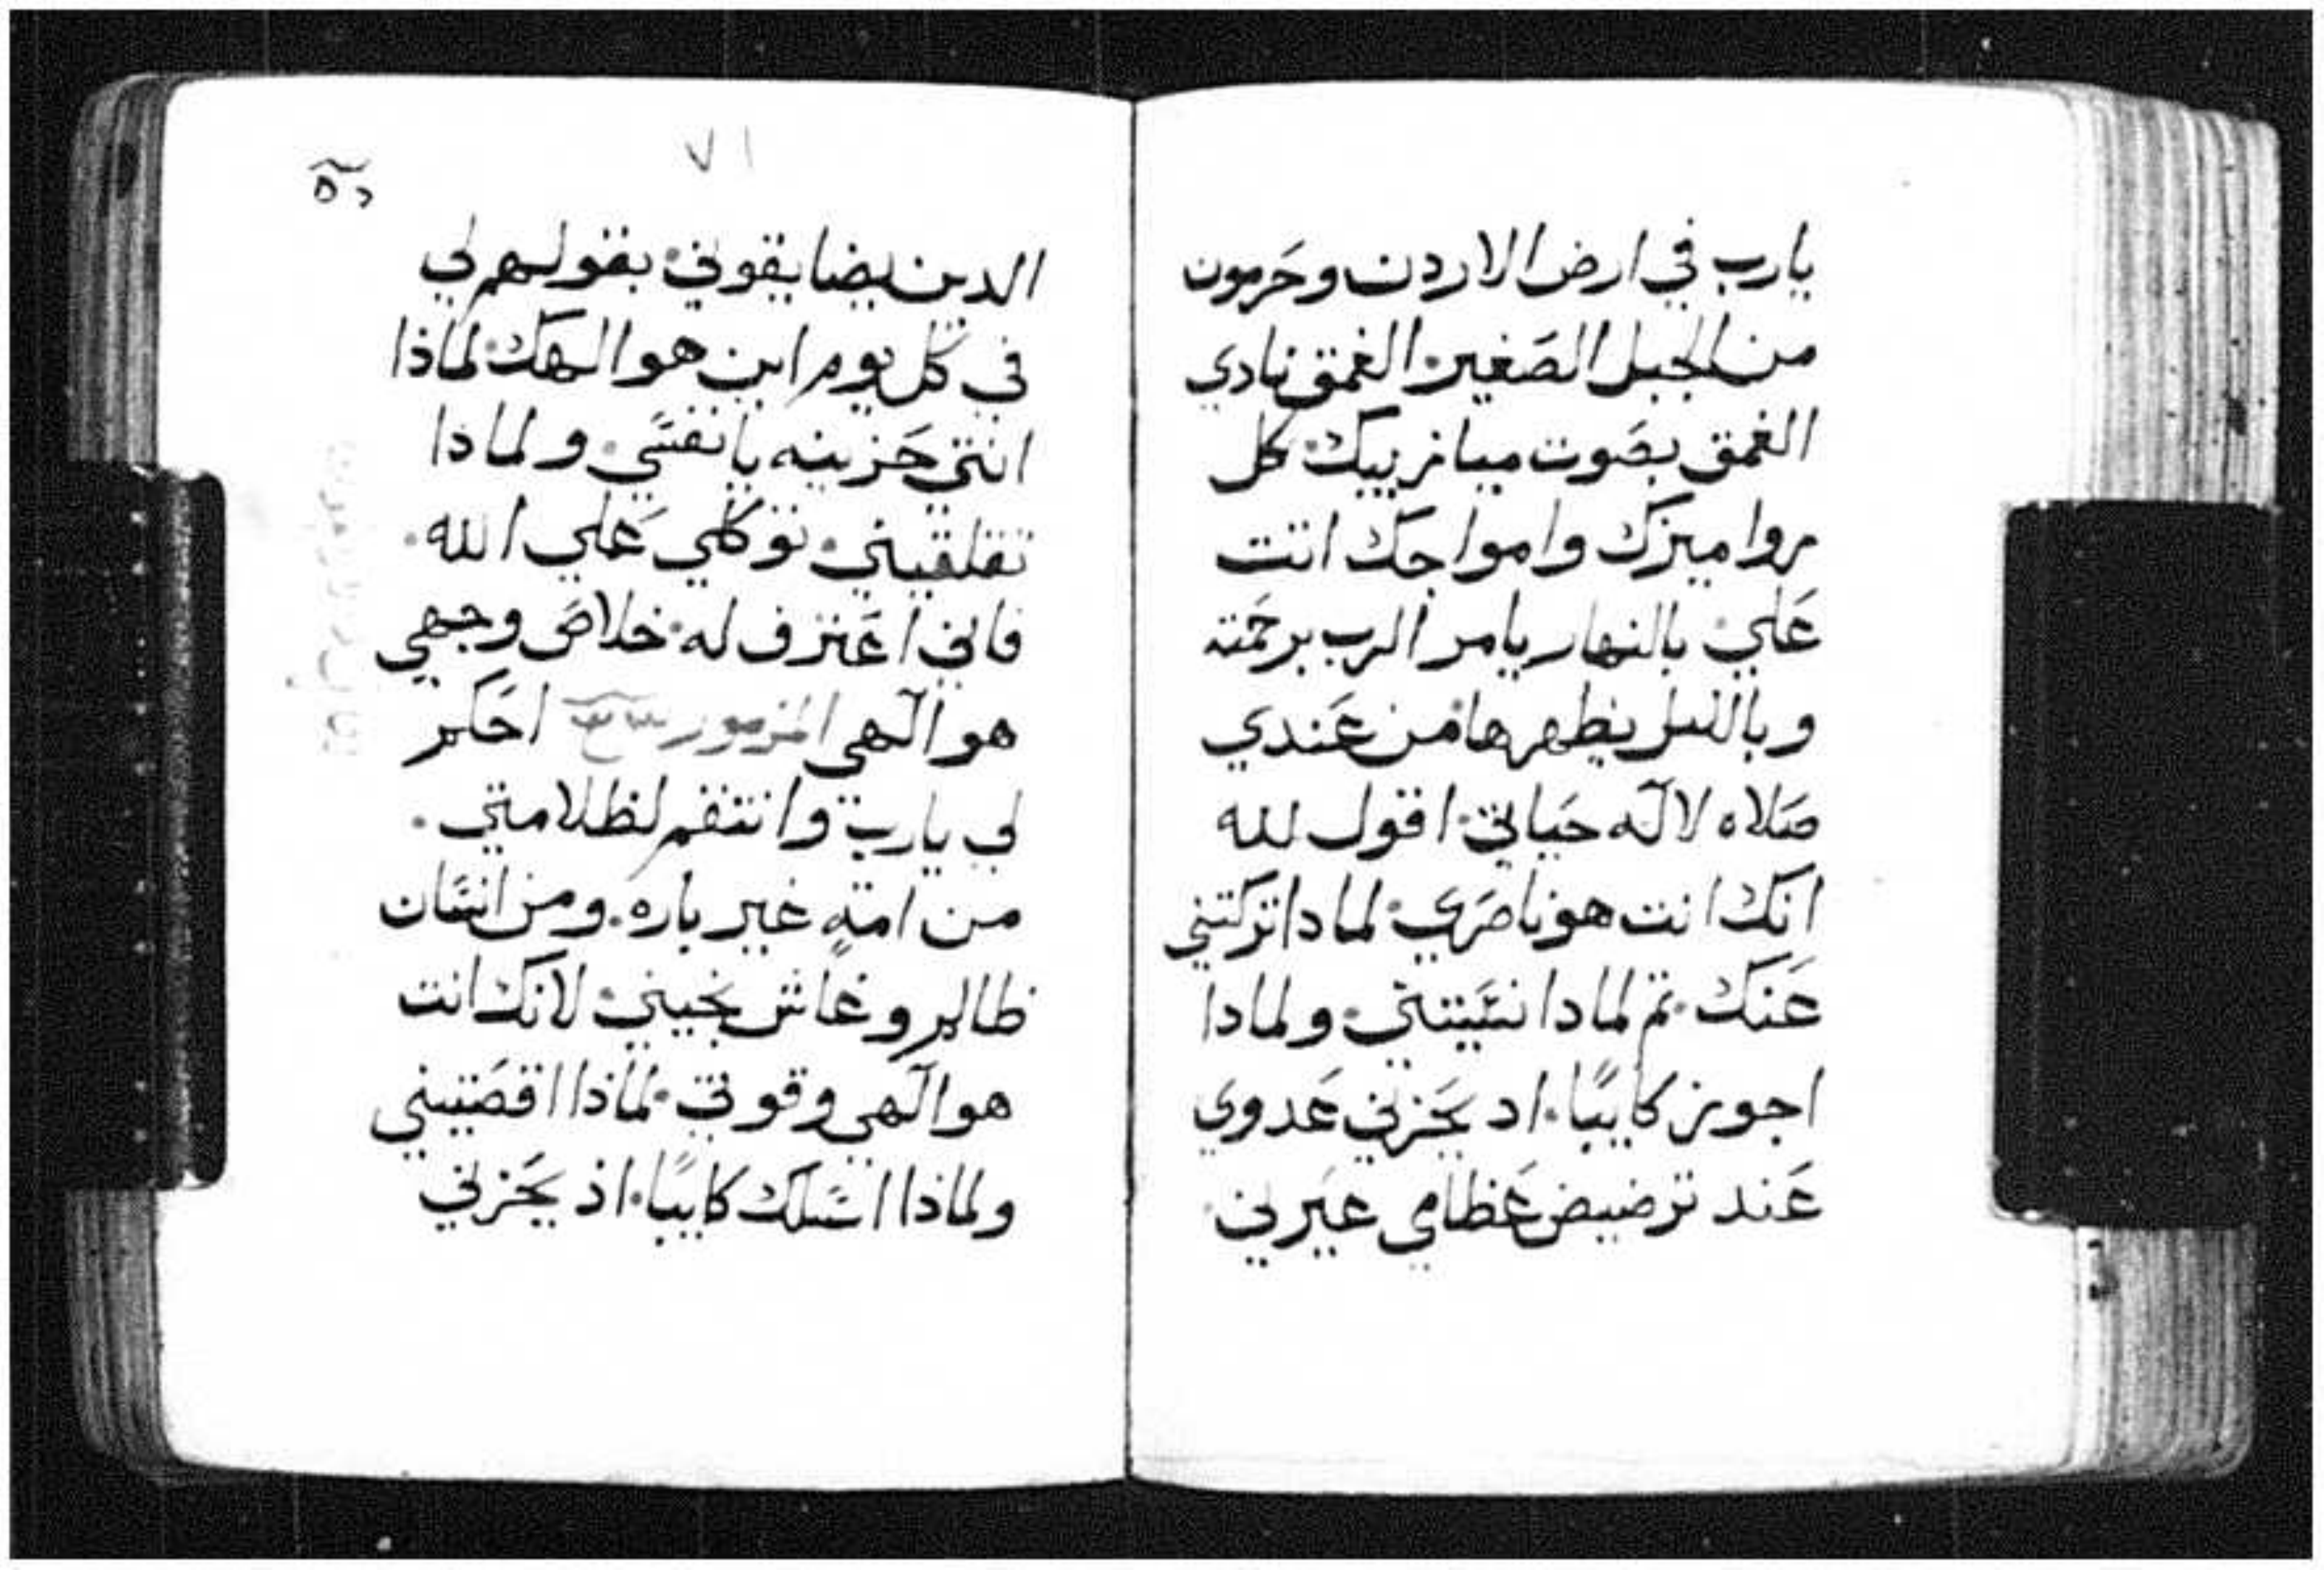 يارب في ارض الاردن وحرمون
من الجبل الصغير الغمق نادي
الغمق بصوت ميازيبك كل
روا ميزك وامواجك اتت
علي بالنهار يامر الرب برحمته
وبالليل يظهرها من عندي
صلاه لاله حياتي اقول لله
انك انت هو ناصري لمادا تركتني
عنك ثم لمادا نسيتني ولمادا
اجوز كايبًا اد يحزني عدوي
عند ترضيض عظامي عيرني
٧١
الدين يضايقوني بقولهم لي
في كل يوم اين هو الهك لماذا
انتي حزينه يا نفسي ولماذا
تقلقيني توكلي علي الله
فاني اعترف له خلاص وجهي
هو الهي المزمور احكم
لي يارب وانتقم لظلامتي
من امةٍ غير باره ومن انسان
ظالم وغاش نجيني لانك انت
هو الهي وقوتي لماذا اقصيتني
ولماذا اسلك كايبًا اذ يحزني